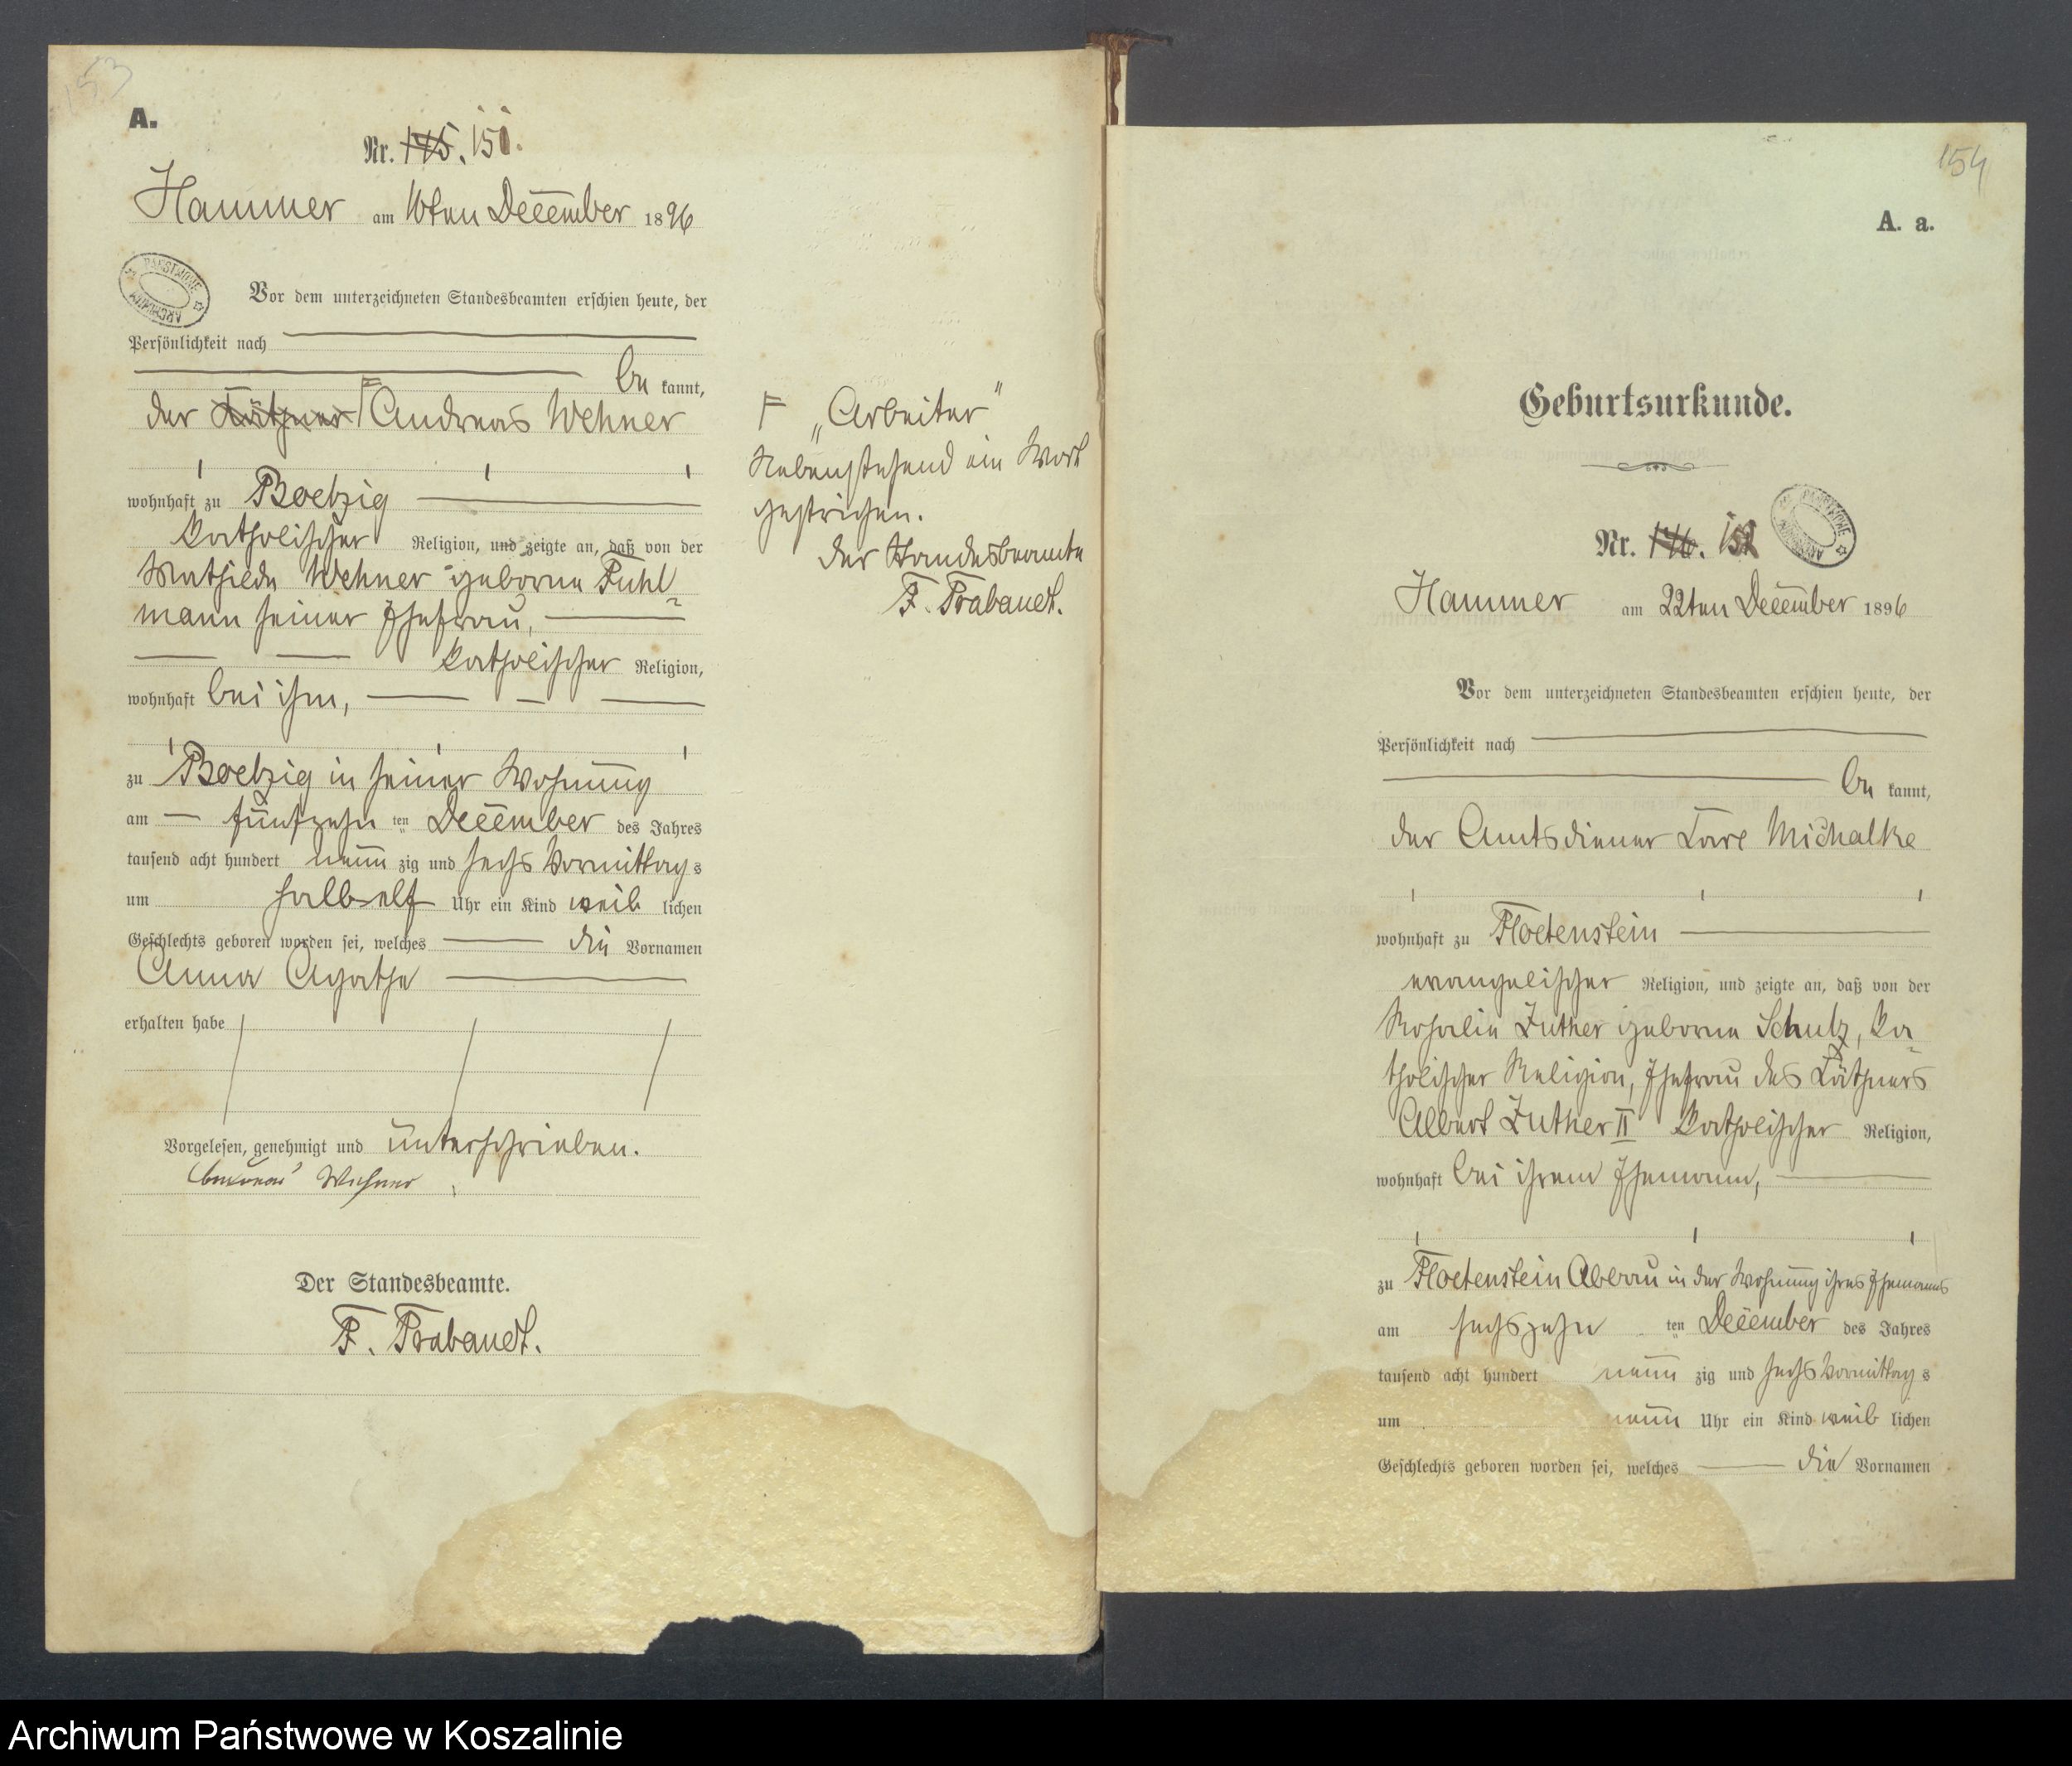 153
A.
Nr. 145. 151.
Hammer am 16ten December 1896
PAŃSTWOWE ARCHIWUM
Vor dem unterzeichneten Standesbeamten erschien heute, der
Persönlichkeit nach
be kannt,
der Käthner F Andreas Wehner
wohnhaft zu Boetzig
katholischer Religion, und zeigte an, daß von der
Mathilde Wehner geborne Fuhl-
mann seiner Ehefrau,
katholischer Religion,
wohnhaft bei ihm,
zu Boetzig in seiner Wohnung
am fünfzehn ten December des Jahres
tausend acht hundert neun zig und sechs Vormittag s
um halb elf Uhr ein Kind weib lichen
Geschlechts geboren worden sei, welches die Vornamen
Anna Agathe
erhalten habe
Vorgelesen, genehmigt und unterschrieben.
Andreas Wehner
Der Standesbeamte.
F. Brabandt.
F „Arbeiter"
Nebenstehend ein Wort
gestrichen.
Der Standesbeamte
F. Brabandt.
154
A. a.
Geburtsurkunde.
Nr. 146. 152
PAŃSTWOWE ARCHIWUM
Hammer am 22ten December 1896
Vor dem unterzeichneten Standesbeamten erschien heute, der
Persönlichkeit nach
be kannt,
der Amtsdiener Carl Michalke
wohnhaft zu Floetenstein
evangelischer Religion, und zeigte an, daß von der
Rosalie Luther geborne Schulz, ka-
tholischer Religion, Ehefrau des Käthners
Albert Luther II katholischer Religion,
wohnhaft bei ihrem Ehemann,
zu Floetenstein Abbau in der Wohnung ihres Ehemanns
am sechszehn ten December des Jahres
tausend acht hundert neun zig und sechs Vormittag s
um neun Uhr ein Kind weib lichen
Geschlechts geboren worden sei, welches die Vornamen
Archiwum Państwowe w Koszalinie